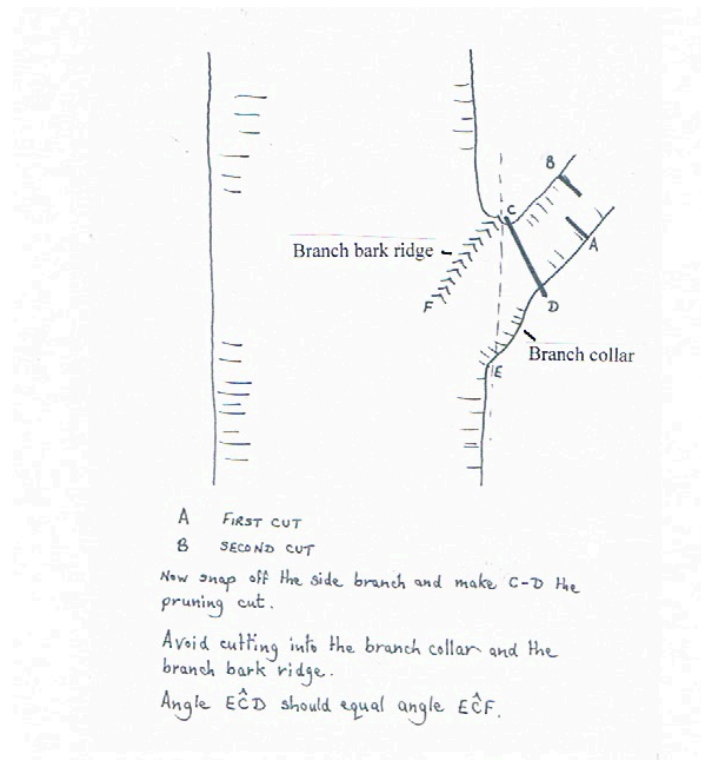 B
C
A
Branch bark ridge
F
D
Branch collar
E
A FIRST CUT
B SECOND CUT
Now snap off the side branch and make C-D the
pruning cut.
Avoid cutting into the branch collar and the
branch bark ridge.
Angle EĈD should equal angle EĈF.